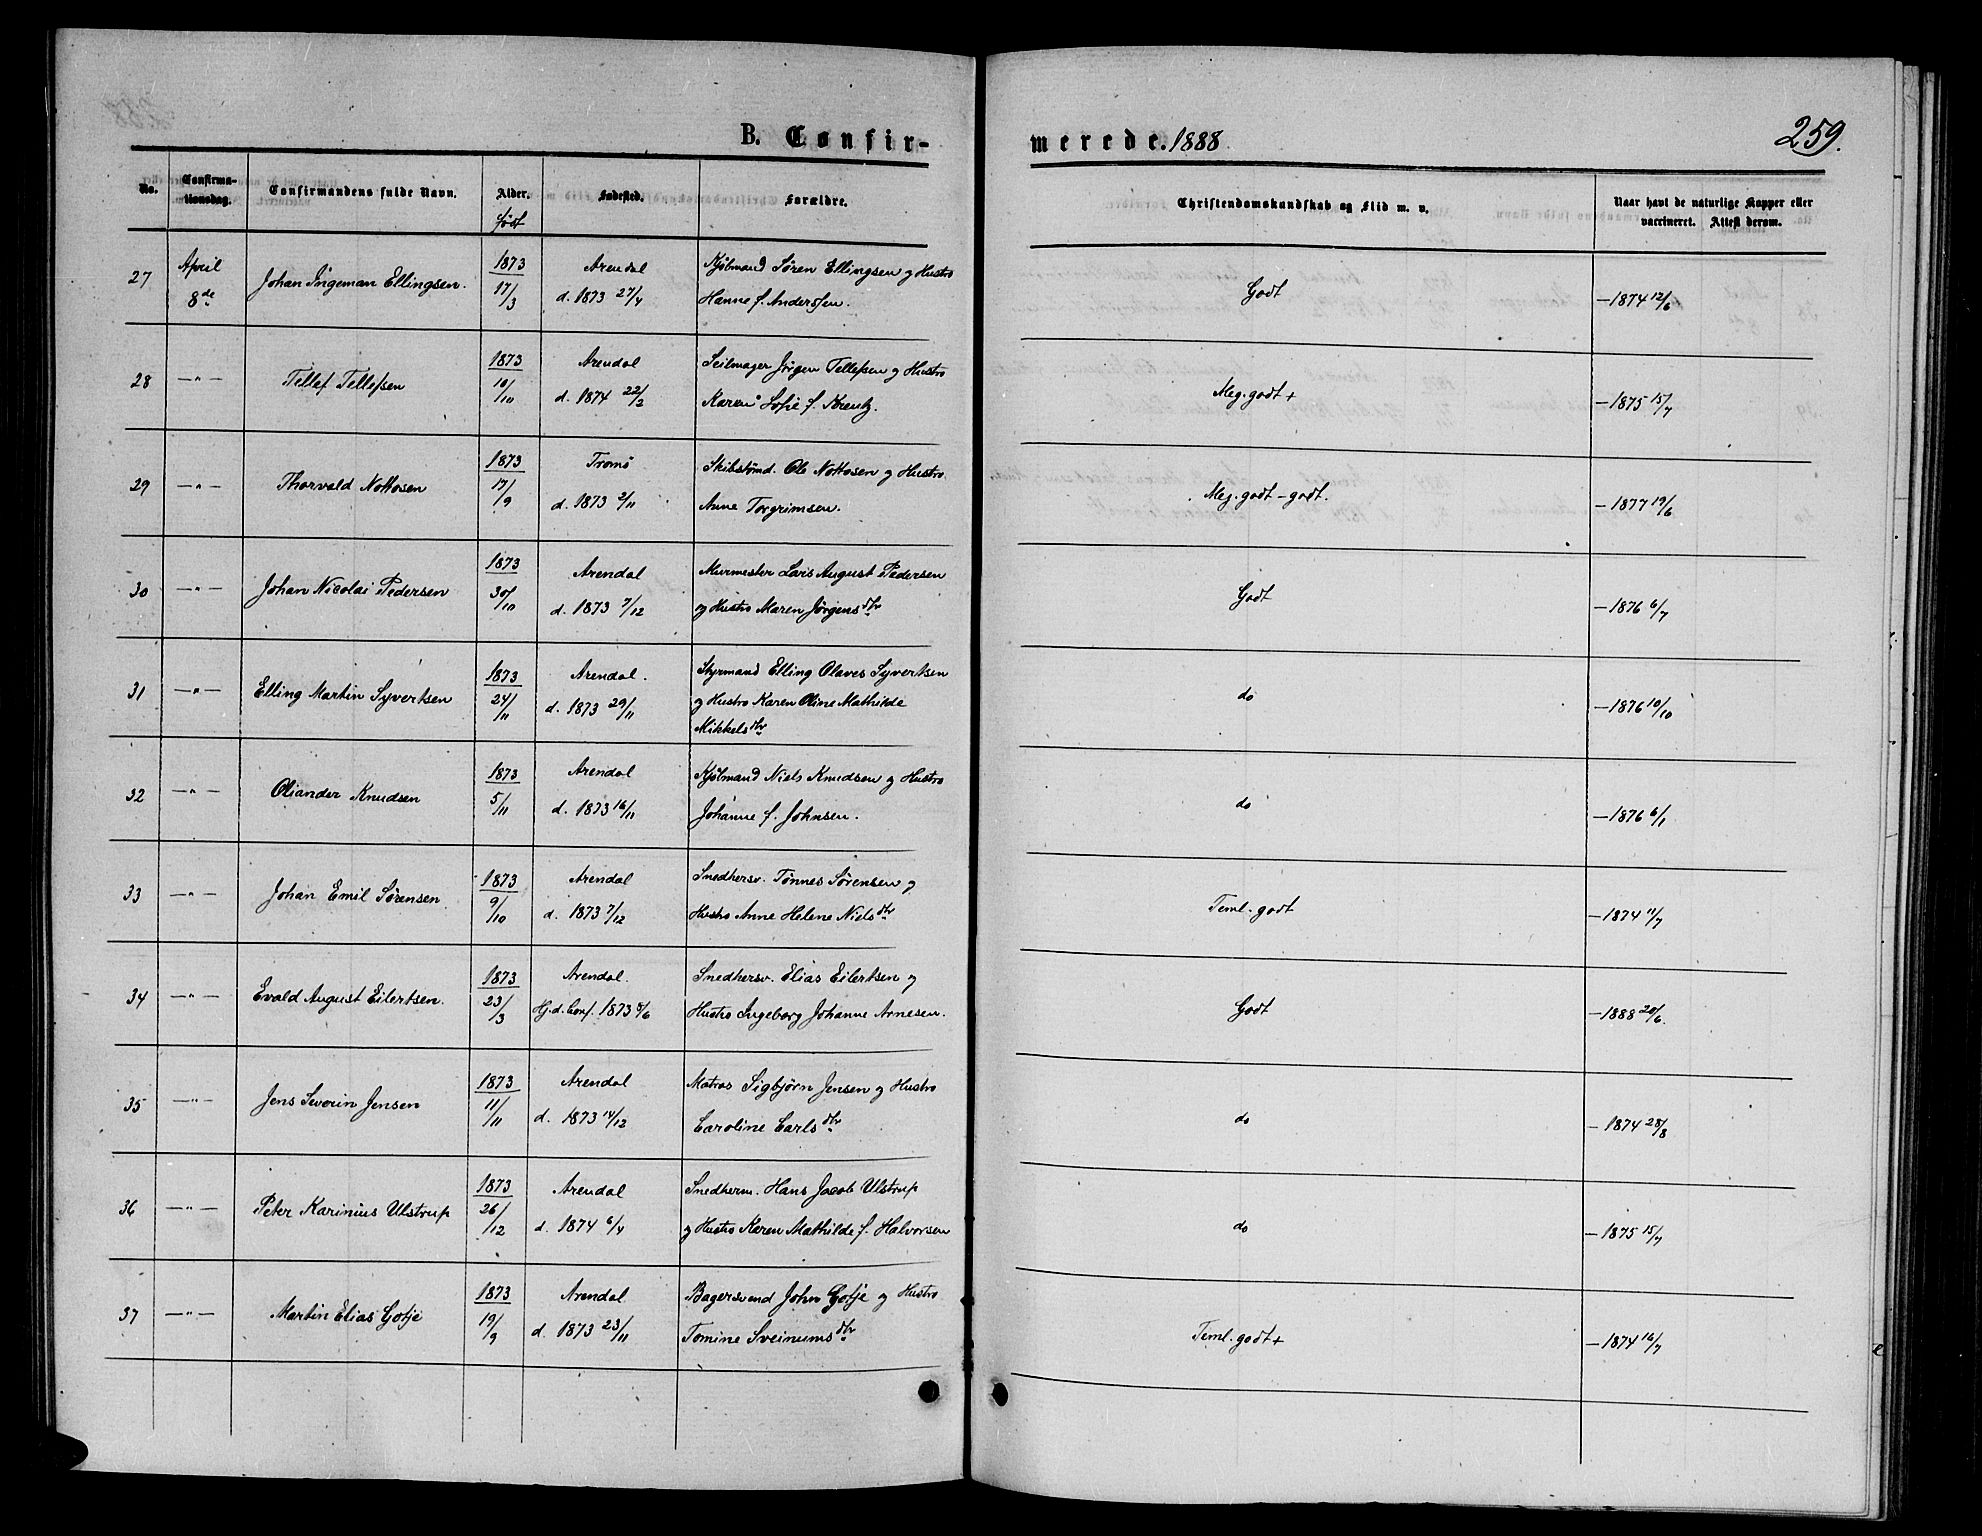 B. Confir-
merede. 1888
259.
No.
Confirma-
tionsdag.
Confirmandens fulde Navn.
Alder.
født
Fødested.
Forældre.
Christendomskundskab og Flid m. v.
Naar havt de naturlige Kopper eller
vaccineret. Attest derom.
27 April 8de Johan Ingeman Ellingsen. 1873 17/3 Arendal d. 1873 27/4 Kjølmand Søren Ellingsen og Hustro
Hanne f. Andersen. Godt —1874 12/6
28 —"— Tellef Tellefsen 1873 10/10 Arendal d. 1874 22/2 Seilmager Jørgen Tellefsen og Hustro
Karen Sofie f. Krentz. Meg. godt + —1875 15/7
29 —"— Thorvald Nottosen 1873 17/9 Tromø d. 1873 2/11 Skibstømd. Ole Nottosen og Hustro
Anne Torgrimsen. Meg. godt - godt. —1877 19/6
30 —"— Johan Nicolai Pedersen 1873 30/10 Arendal d. 1873 7/12 Murmester Lars August Pedersen
og Hustro Maren Jørgensdtr Godt —1876 6/7
31 —"— Elling Martin Syvertsen 1873 24/11 Arendal. d. 1873 29/11 Styrmand Elling Olaves Syvertsen
og Hustro Karen Oline Mathilde
Mikkelsdtr do —1876 10/10
32 —"— Oliander Knudsen 1873 5/11 Arendal d. 1873 16/11 Kjølmand Niels Knudsen og Hustro
Johanne f. Johnsen. do —1876 6/1
33 —"— Johan Emil Sørensen 1873 9/10 Arendal d. 1873 7/12 Snedkersv. Tønnes Sørensen og
Hustro Anne Helene Nielsdtr Teml. godt —1874 11/7
34 —"— Evald August Eilertsen. 1873 23/3 Arendal. Hj. d. Conf. 1873 8/6 Snedkersv. Elias Eilertsen og
Hustro Ingeborg Johanne Arnesen. Godt —1888 20/6.
35 —"— Jens Severin Jensen 1873 11/11 Arendal d. 1873 14/12 Matros Sigbjørn Jensen og Hustro
Caroline Carlsdtr do —1874 28/8
36 —"— Peter Karinius Ulstrup 1873 26/12 Arendal d. 1874 6/4 Snedkerm. Hans Jacob Ulstrup
og Hustro Karen Mathilde f. Halvorsen do —1875 15/7
37 —"— Martin Elias Gotje 1873 19/9 Arendal d. 1873 23/11 Bagersvend John Gotje og Hustro
Tomine Sveinumsdtr Teml. godt + —1874 16/7